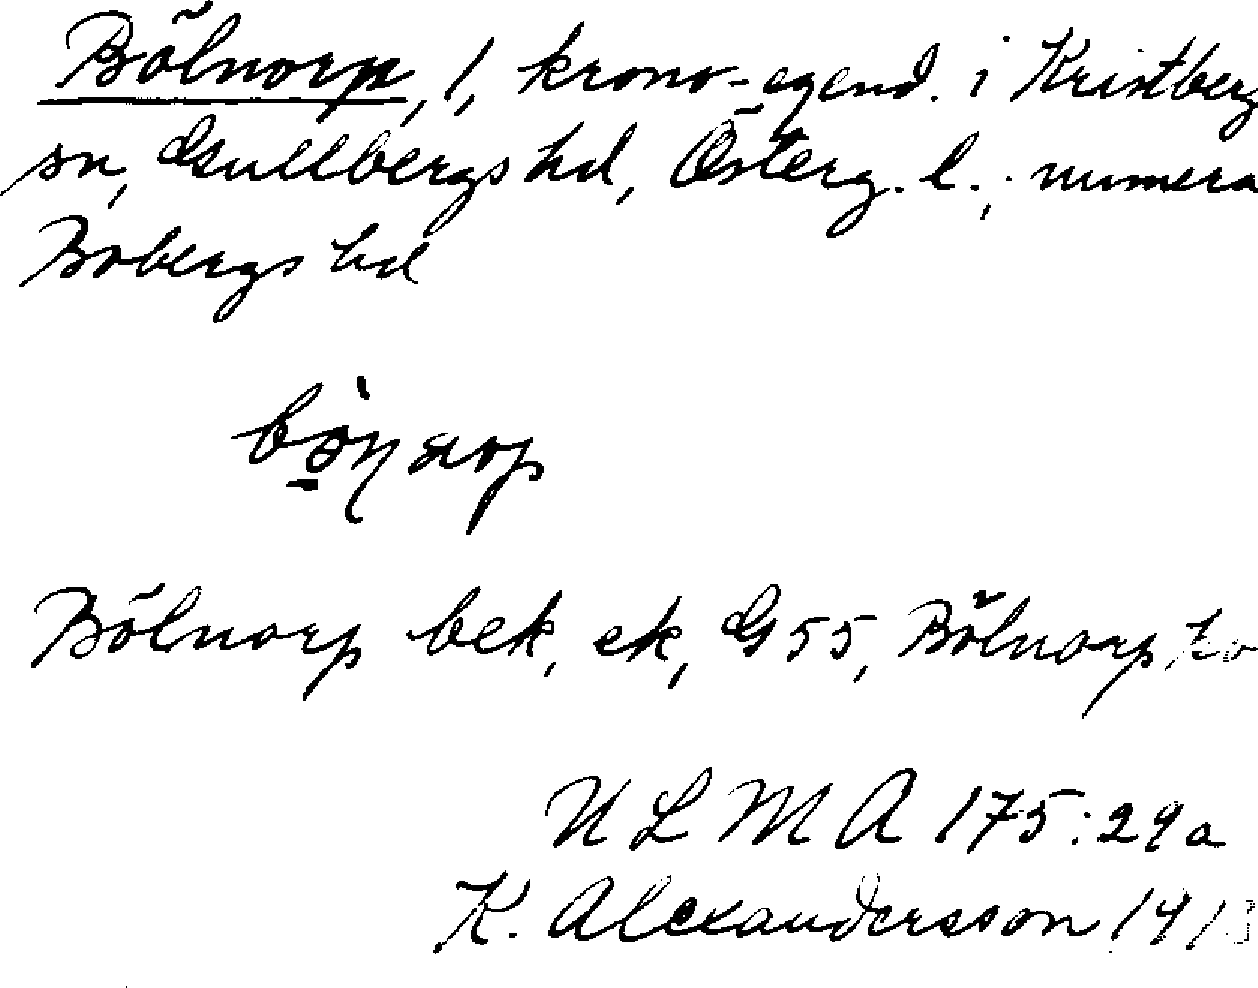 Bölnorp, 1, krono-egend. i Kristberg
sn, Gullbergs hd, Österg. l.; numera
Bobergs hd
Bölnorp bek, ek, G 55, Bölnorp
ULMA 175:29a
K. Alexandersson